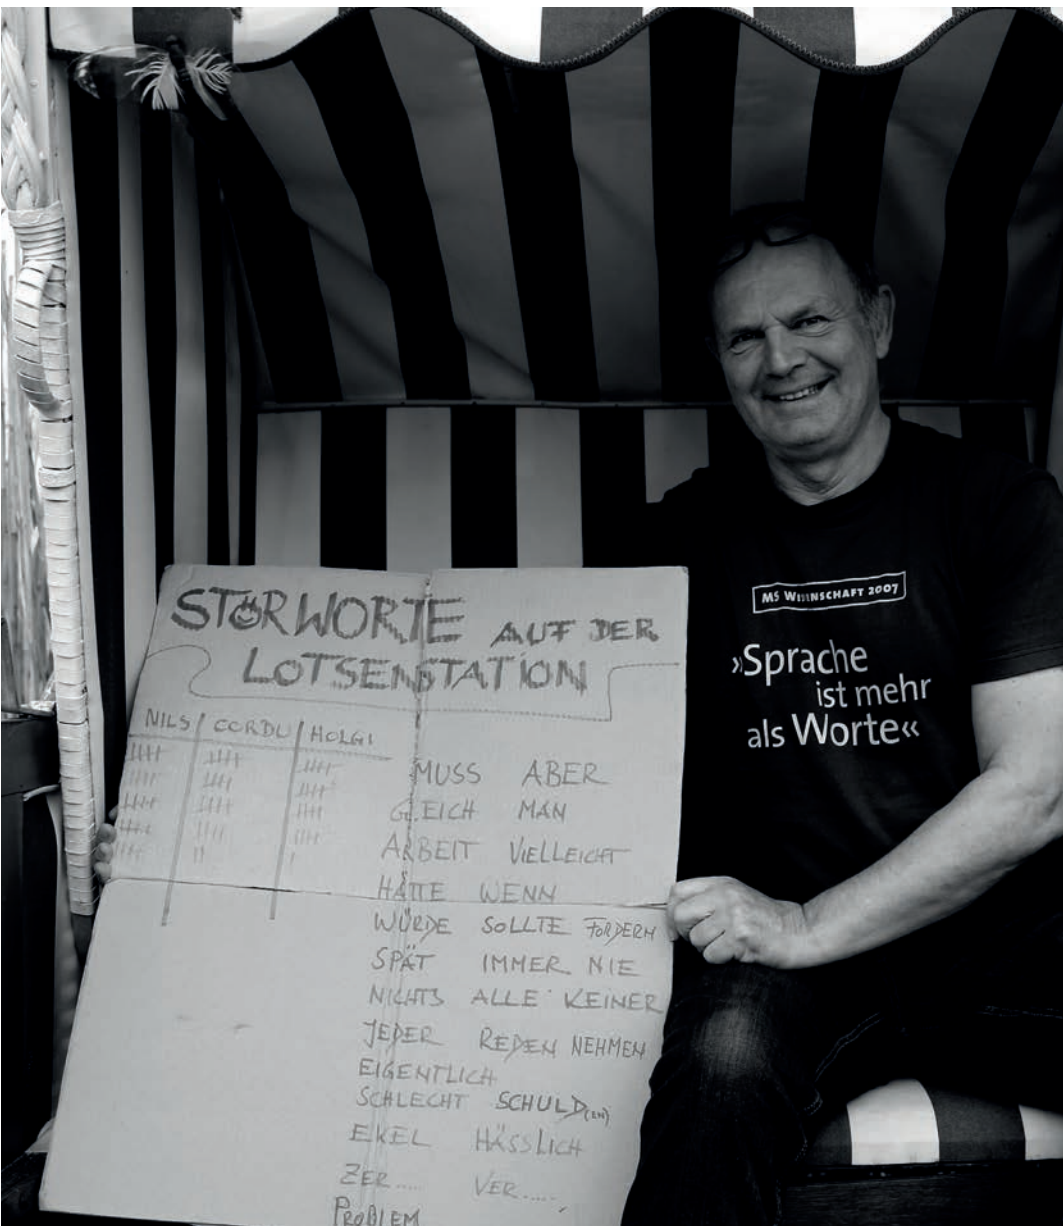 STÖRWORTE AUF DER
LOTSENSTATION
NILS CORDU HOLGI
MUSS ABER
GLEICH MAN
ARBEIT VIELLEICHT
HÄTTE WENN
WÜRDE SOLLTE FORDERN
SPÄT IMMER NIE
NICHTS ALLE KEINER
JEDER REDEN NEHMEN
EIGENTLICH
SCHLECHT SCHULD(EN)
EKEL HÄSSLICH
ZER..... VER.....
PROBLEM
MS WISSENSCHAFT 2007
»Sprache
ist mehr
als Worte«